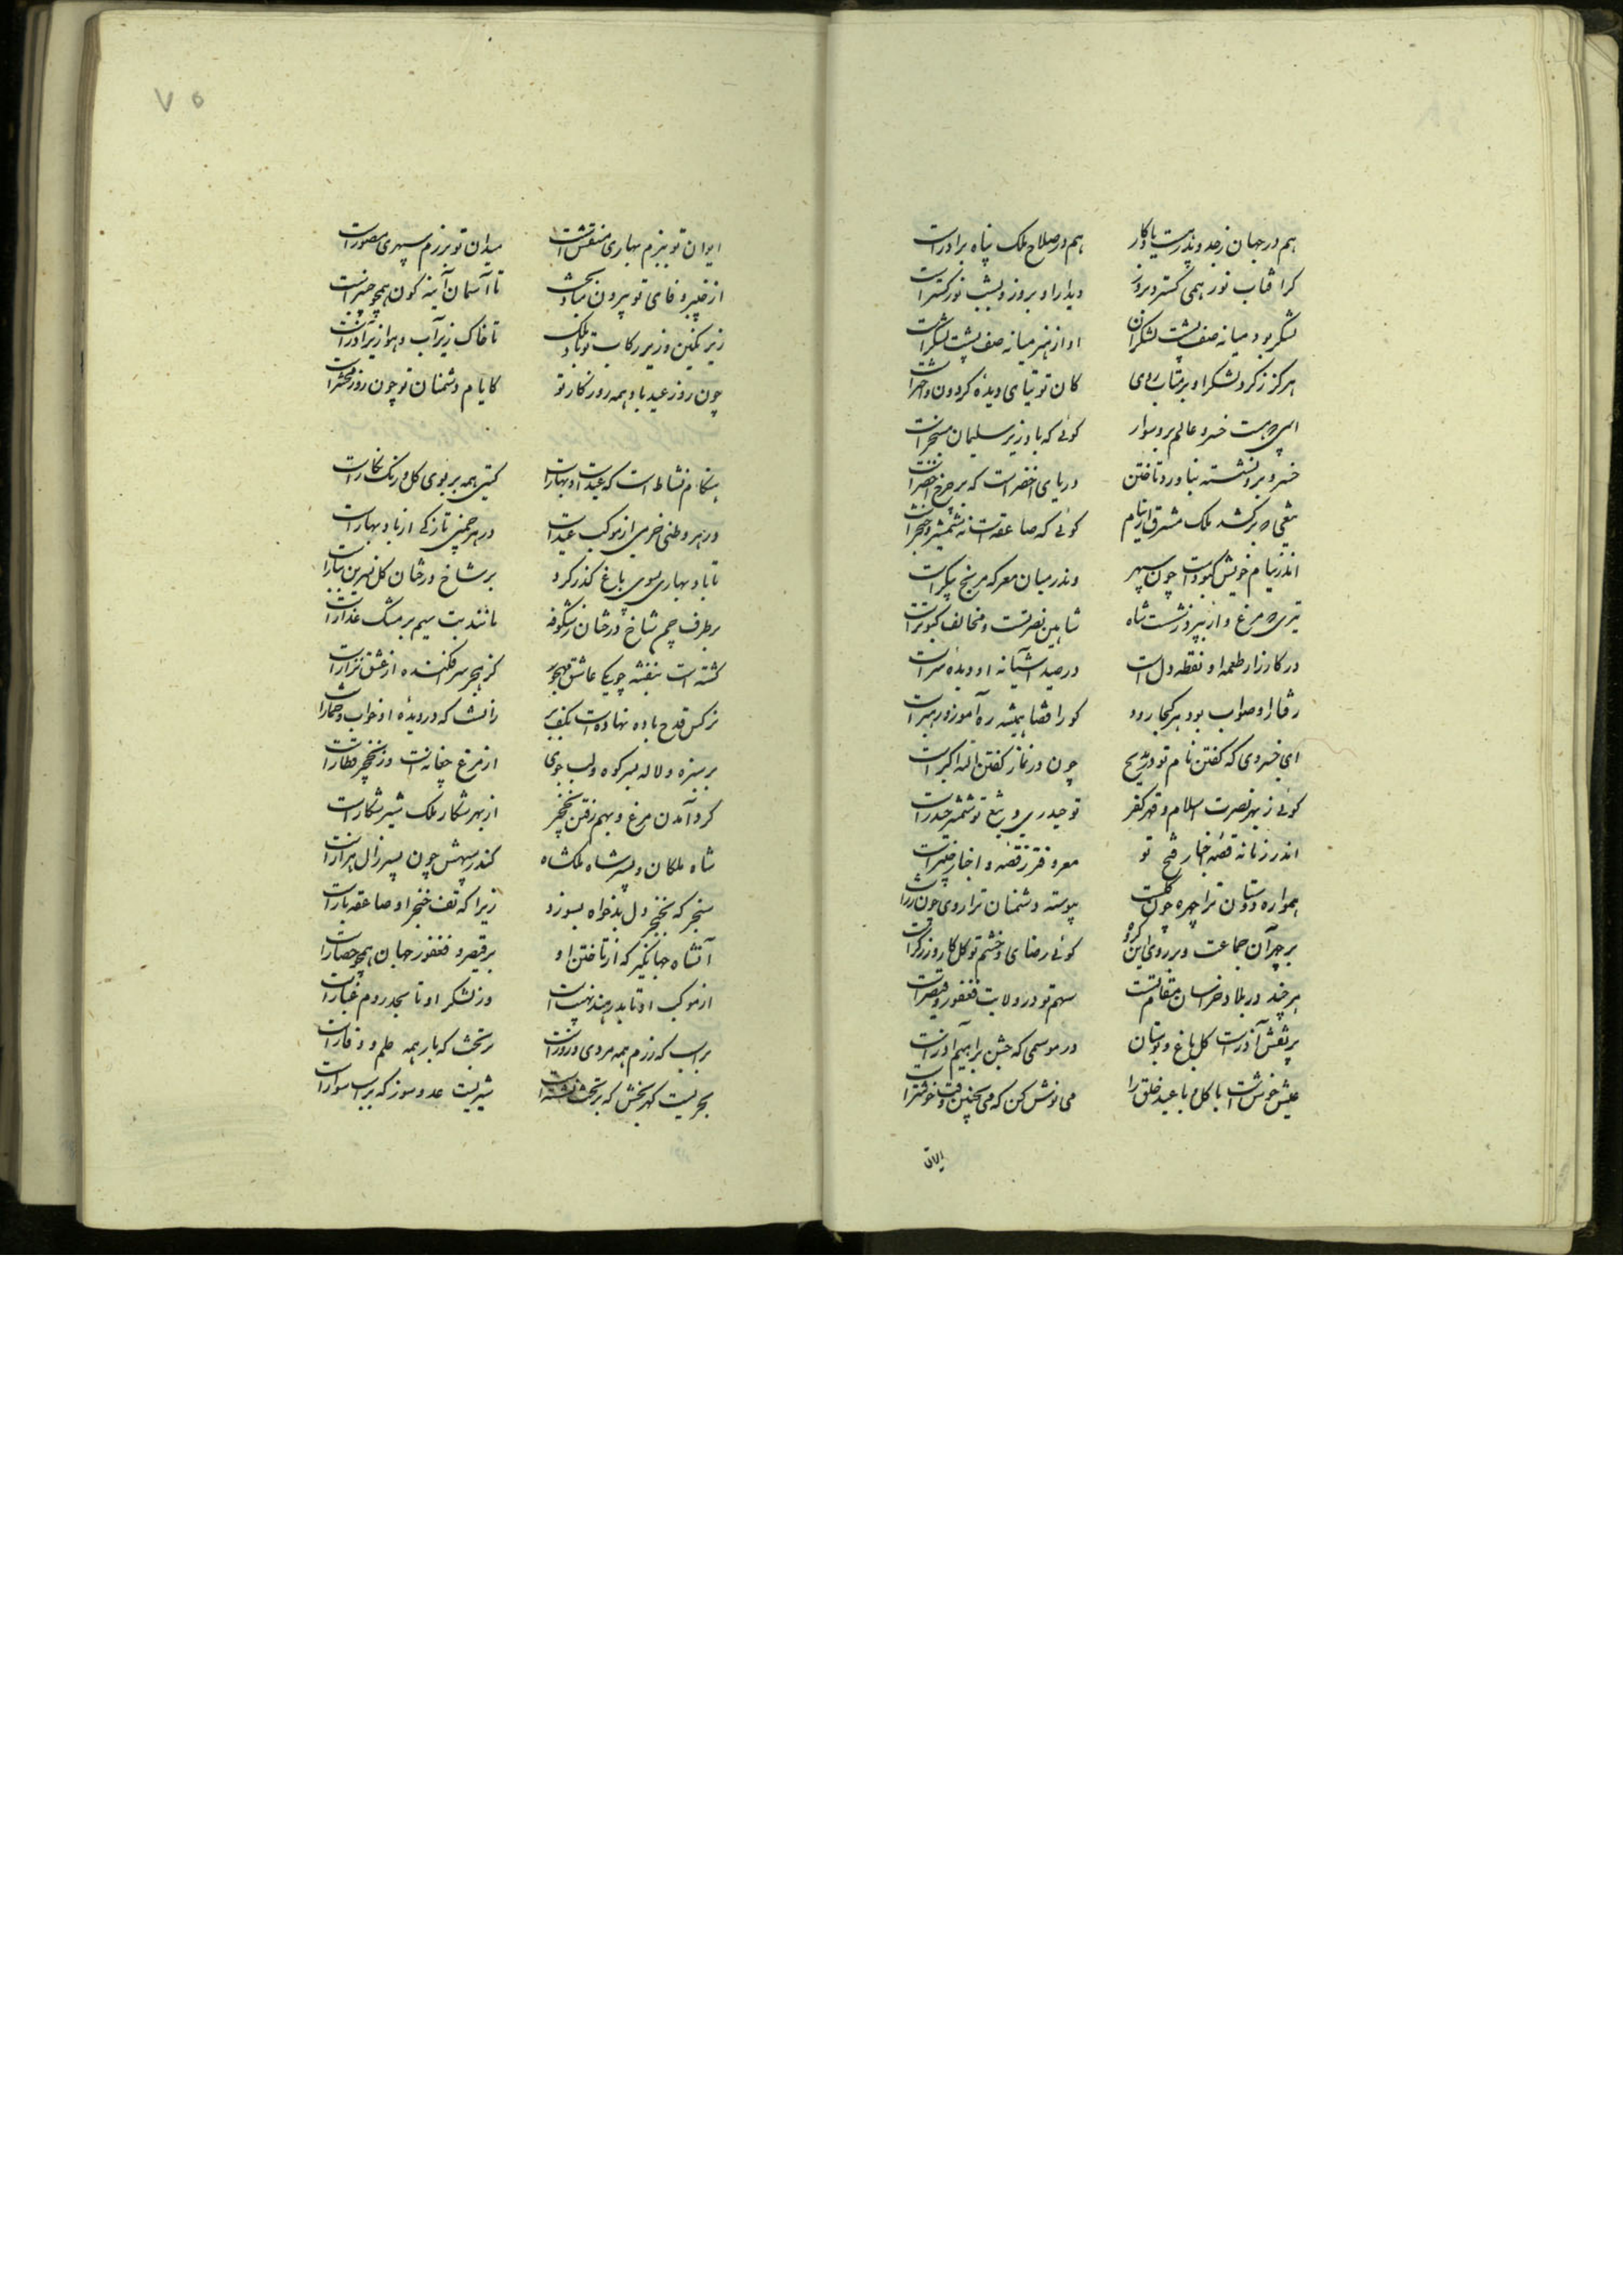 هم در جهان ز جد و پدر هست یادگار هم در صلاح ملک پناه برادرست
گر آفتاب نور همی گسترد بروز دیدار او بروز و بشب نور گسترست
لشکر بود میانه صف پشت لشکران او از هنر میانه صف پشت لشکرست
هرگز ز گرد لشکر او برمتاب روی کان توتیای دیده گردون و اخترست
اسبی چه هست خسرو عالم برو سوار گوئی که باد زیر سلیمان مسخرست
خسرو برو نشسته بناورد تاختن دریای اخضر است که بر چرخ اخضرست
تیغی چه برکشد ملک مشرق از نیام گوئی که صاعقه است نه شمشیر و خنجرست
اندر نیام خویش کبودست چون سپهر وندر میان معرکه مریخ پیکرست
تیری چه مرغ وار بپرد ز شست شاه شاهین نصرتست و مخالف کبوترست
در کارزار طعمه او نقطه دل است در صید آشیانه او دیده سرست
رفتار او صواب بود هر کجا رود کو را قضا همیشه ره آموز و رهبرست
ای خسروی که گفتن نام تو در مدیح چون در نماز گفتن الله اکبرست
گوئی ز بهر نصرت اسلام و قهر کفر تو حیدری و تیغ تو شمشیر حیدرست
اندر زمانه قصه اخبار فتح تو معروفتر ز قصه و اخبار خیبرست
همواره دوستان ترا چهره چون گلست پیوسته دشمنان ترا روی چون زرست
بر چهر آن جماعت و بر روی این گروه گوئی رضای و خشم تو گل کار و زرگرست
هرچند در بلاد خراسان مقام تست سهم تو در ولایت فغفور و قیصرست
پر نقش آذرست گل باغ و بوستان در موسمی که جشن براهیم آذرست
عیش خوش است با گل و با عید خلق را می نوش کن که می بچنین وقت خوشترست
ایوان
۷۵
ایوان تو ببزم بهاری منقش است میدان تو برزم سپهری مصورست
از خنبر وفای تو بیرون مباد بخت تا آسمان آینه گون همچو چنبرست
زیر نگین و زیر رکاب تو باد ملک تا خاک زیر آب و هوا زیر آذرست
چون روز عید باد همه روزگار تو کایام دشمنان تو چون روز محشرست
هنگام نشاط است که عیدست و بهارست گیتی همه بر بوی گل و رنگ نگارست
در هر وطنی خرمی از موکب عیدست در هر چمنی تازگی از باد بهارست
تا باد بهاری بسوی باغ گذر کرد بر شاخ درختان گل نسرین بیارست
بر طرف چمن شاخ درختان ز شکوفه مانند بت سیم بر مشک عذارست
گشته است بنفشه چو یکی عاشق مهجور کز هجر سرافکنده از عشق نزارست
نرگس قدح باده نهادست بکف بر زانست که در دیده او خواب و خمارست
بر سبزه و لاله بسر کوه و لب جوی از مرغ چغانه است وز نخجیر قطارست
گرد آمدن مرغ و بهم رفتن نخجیر از بهر شکار ملک شیر شکارست
شاه ملکان و پسر شاه ملکشاه کندر سپهش چون پسر زال هزارست
سنجر که بخنجر دل بدخواه بسوزد زیرا که تف خنجر او صاعقه بارست
آن شاه جهانگیر که از تاختن او بر قیصر و فغفور جهان همچو حصارست
از موکب او تا بدر هند نهیب است وز لشکر او تا بحد روم غبارست
بر اسب که رزم همه مردی و زورست بر تخت که بار همه حلم و وقارست
بحریست گهربخش که بر تخت نشسته است شیریست عدوسوز که بر اسب سوارست